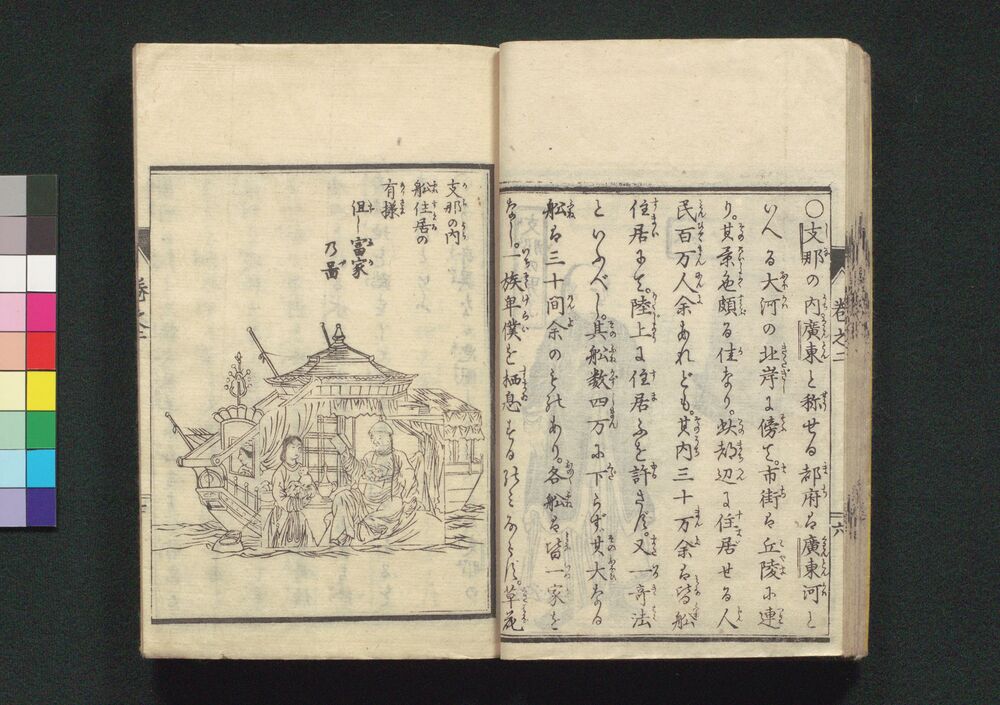 〇支那の内廣東と称せる都府は廣東河と
いへる大河の北岸に傍て市街は丘陵に連
り其景色頗る佳なり此都辺に住居せる人
民百万人余あれども其内三十万余は皆舩
住居にて陸上に住居ふを許さず又一奇法
といふべし其舩数四万に下らず其大なる
舩は三十間余のものあり各舩は皆一家を
なし一族卑僕を栖息するのみならず草花
巻之二
六
支那の内
舩住居の
有様
但し富家
乃昌